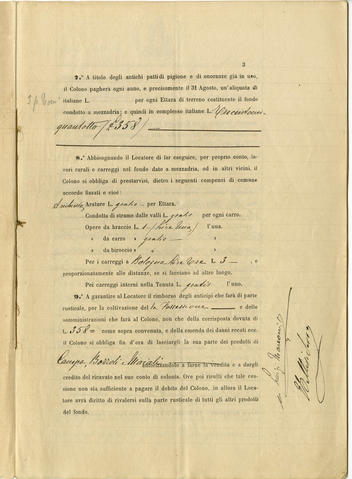 3
7.° A titolo degli antichi patti di pigione e di onoranze già in uso,
il Colono pagherà ogni anno, e precisamente il 31 Agosto, un'aliquota di
italiane L. per ogni Ettara di terreno costituente il fondo
condotto a mezzadria; e quindi in complesso italiane L. Trecentocin
quantotto (£ 358)
8.° Abbisognando il Locatore di far eseguire, per proprio conto, la-
vori rurali e carreggi nel fondo dato a mezzadria, od in altri vicini, il
Colono si obbliga di prestarvisi, dietro i seguenti compensi di comune
accordo fissati e cioè:
Arature L. gratis per Ettara.
Condotta di strame dalle valli L. gratis per ogni carro.
Opere da braccio L. 1 (Lira Una) l'una.
» da carro » gratis
» da biroccio »
Per i carreggi a Bologna lire tre L 3 e
proporzionatamente alle distanze, se si facciano ad altre luogo.
Per carreggi interni nella Tenuta L. gratis l'uno.
9.° A garantire al Locatore il rimborso degli anticipi che farà di parte
rusticale, per la coltivazione del la Possessione e delle
somministrazioni che farà al Colono, non che della corrisposta dovuta di
L. 358 come sopra convenuta, e della emenda dei danni recati ecc.
il Colono si obbliga fin d'ora di lasciargli la sua parte dei prodotti di
Canepa, Bozzoli e
autorizzandolo a farne la vendita e a dargli
credito del ricavato nel suo conto di colonia. Ove poi risulti che tale ces-
sione non sia sufficiente a pagare il debito del Colono, in allora il Loca-
tore avrà diritto di rivalersi sulla parte rusticale di tutti gli altri prodotti
del fondo.